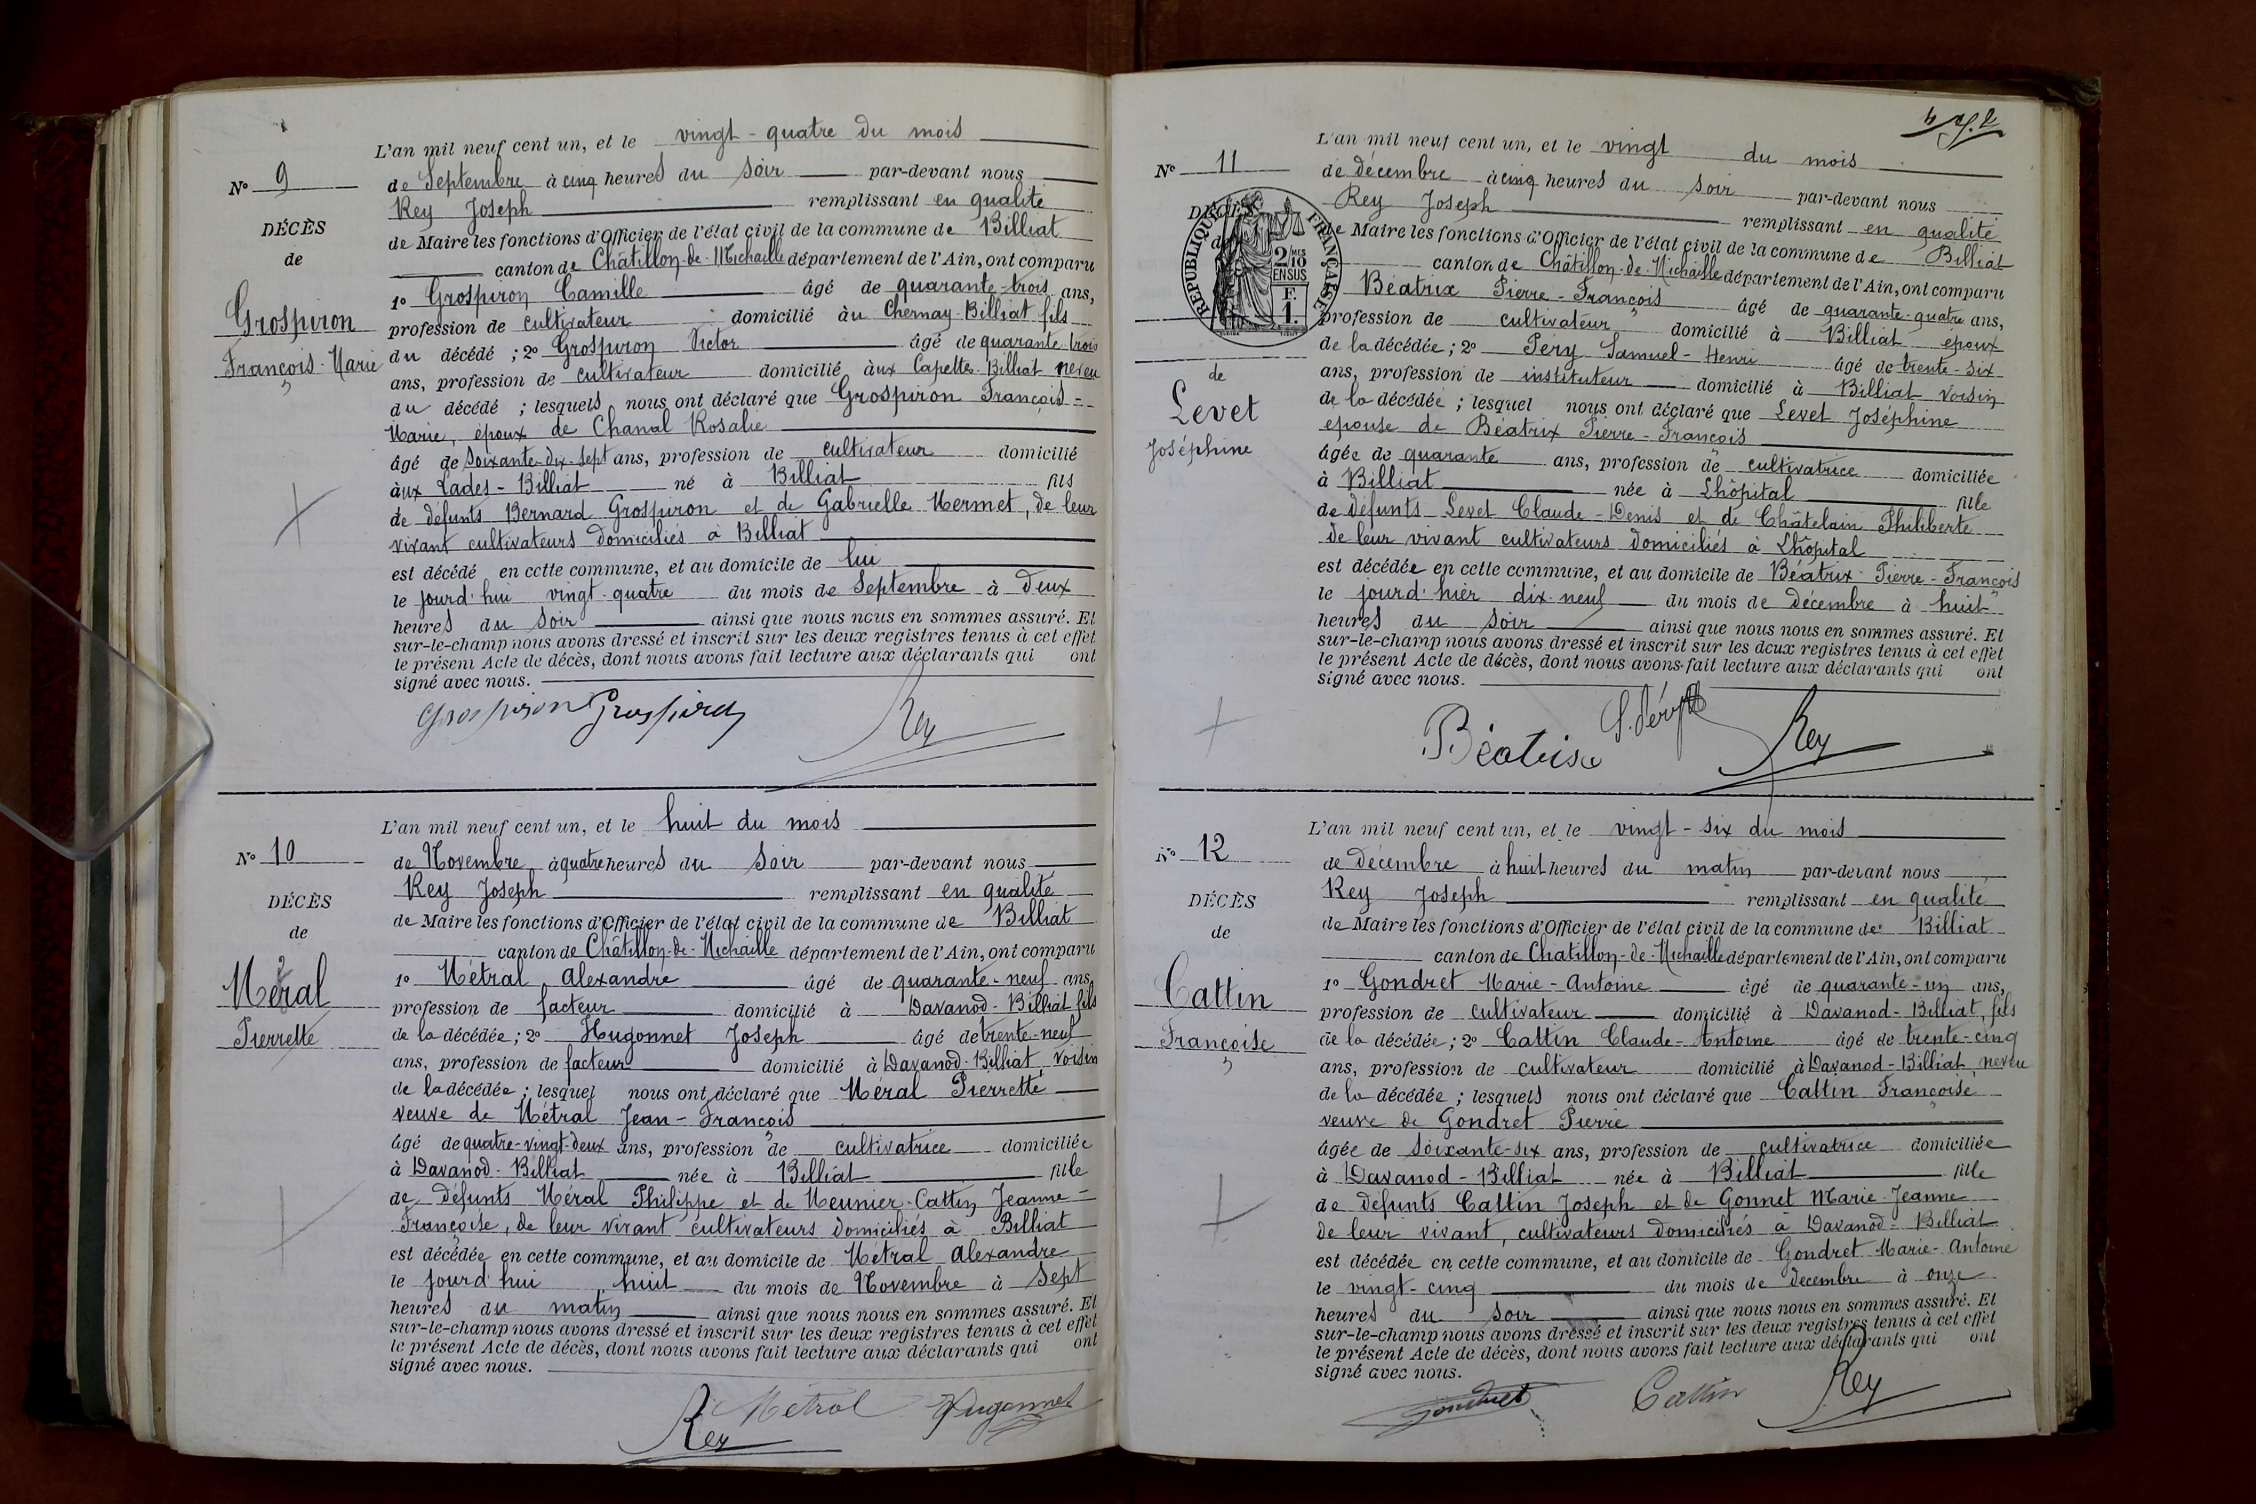 N° 9
DÉCÈS
de
Grospiron
François-Marie
L'an mil neuf cent un, et le vingt-quatre du mois
de Septembre à cinq heures du soir par-devant nous
Rey Joseph remplissant en qualité
de Maire les fonctions d'Officier de l'état civil de la commune de Billiat
canton de Châtillon-de-Michaille département de l'Ain, ont comparu
1° Grospiron Camille âgé de quarante-trois ans,
profession de cultivateur domicilié au Chernay-Billiat fils
du décédé ; 2° Grospiron Victor âgé de quarante-trois
ans, profession de cultivateur domicilié aux Capettes-Billiat neveu
du décédé ; lesquels nous ont déclaré que Grospiron François-
Marie, époux de Chanal Rosalie
âgé de soixante-dix-sept ans, profession de cultivateur domicilié
aux Lades-Billiat né à Billiat fils
de défunts Bernard Grospiron et de Gabrielle Mermet, de leur
vivant cultivateurs domiciliés à Billiat
est décédé en cette commune, et au domicile de lui
le jourd'hui vingt-quatre du mois de Septembre à deux
heures du soir ainsi que nous nous en sommes assuré. Et
sur-le-champ nous avons dressé et inscrit sur les deux registres tenus à cet effet
le présent Acte de décès, dont nous avons fait lecture aux déclarants qui ont
signé avec nous.
Grospiron Grospiron Rey
N° 10
DÉCÈS
de
Méral
Pierrette
L'an mil neuf cent un, et le huit du mois
de Novembre à quatre heures du soir par-devant nous
Rey Joseph remplissant en qualité
de Maire les fonctions d'Officier de l'état civil de la commune de Billiat
canton de Châtillon-de-Michaille département de l'Ain, ont comparu
1° Métral Alexandre âgé de quarante-neuf ans,
profession de facteur domicilié à Davanod-Billiat fils
de la décédée ; 2° Hugonnet Joseph âgé de trente-neuf
ans, profession de facteur domicilié à Davanod-Billiat, voisin
de la décédée ; lesquel nous ont déclaré que Méral Pierrette
veuve de Métral Jean-François
âgé de quatre-vingt-deux ans, profession de cultivatrice domiciliée
à Davanod-Billiat née à Billiat fille
de défunts Méral Philippe et de Meunier-Cattin Jeanne-
Françoise, de leur vivant cultivateurs domiciliés à Billiat
est décédée en cette commune, et au domicile de Métral Alexandre
le jourd'hui huit du mois de Novembre à sept
heures du matin ainsi que nous nous en sommes assuré. Et
sur-le-champ nous avons dressé et inscrit sur les deux registres tenus à cet effet
le présent Acte de décès, dont nous avons fait lecture aux déclarants qui ont
signé avec nous.
Rey Métral Hugonnet
N° 11
DÉCÈS
de
Levet
Joséphine
RÉPUBLIQUE FRANÇAISE
2/10 MES
EN SUS
F.
1.
L'an mil neuf cent un, et le vingt du mois
de décembre à cinq heures du soir par-devant nous
Rey Joseph remplissant en qualité
de Maire les fonctions d'Officier de l'état civil de la commune de Billiat
canton de Châtillon-de-Michaille département de l'Ain, ont comparu
Béatrix Pierre-François âgé de quarante-quatre ans,
profession de cultivateur domicilié à Billiat époux
de la décédée ; 2° Péry Samuel-Henri âgé de trente-six
ans, profession de instituteur domicilié à Billiat voisin
de la décédée ; lesquel nous ont déclaré que Levet Joséphine
épouse de Béatrix Pierre-François
âgée de quarante ans, profession de cultivatrice domiciliée
à Billiat née à Lhôpital fille
de défunts Levet Claude-Denis et de Châtelain Philiberte
de leur vivant cultivateurs domiciliés à Lhôpital
est décédée en cette commune, et au domicile de Béatrix Pierre-François
le jourd'hier dix-neuf du mois de décembre à huit
heures du soir ainsi que nous nous en sommes assuré. Et
sur-le-champ nous avons dressé et inscrit sur les deux registres tenus à cet effet
le présent Acte de décès, dont nous avons fait lecture aux déclarants qui ont
signé avec nous.
Béatrix S. Péry Rey
N° 12
DÉCÈS
de
Cattin
Françoise
L'an mil neuf cent un, et le vingt-six du mois
de décembre à huit heures du matin par-devant nous
Rey Joseph remplissant en qualité
de Maire les fonctions d'Officier de l'état civil de la commune de Billiat
canton de Chatillon-de-Michaille département de l'Ain, ont comparu
1° Gondret Marie-Antoine âgé de quarante-un ans,
profession de cultivateur domicilié à Davanod-Billiat, fils
de la décédée ; 2° Cattin Claude-Antoine âgé de trente-cinq
ans, profession de cultivateur domicilié à Davanod-Billiat neveu
de la décédée ; lesquels nous ont déclaré que Cattin Françoise
veuve de Gondret Pierre
âgée de soixante-six ans, profession de cultivatrice domiciliée
à Davanod-Billiat née à Billiat fille
de défunts Cattin Joseph et de Gonnet Marie-Jeanne
de leur vivant, cultivateurs domiciliés à Davanod-Billiat
est décédée en cette commune, et au domicile de Gondret Marie-Antoine
le vingt-cinq du mois de décembre à onze
heures du soir ainsi que nous nous en sommes assuré. Et
sur-le-champ nous avons dressé et inscrit sur les deux registres tenus à cet effet
le présent Acte de décès, dont nous avons fait lecture aux déclarants qui ont
signé avec nous.
Gondret Cattin Rey